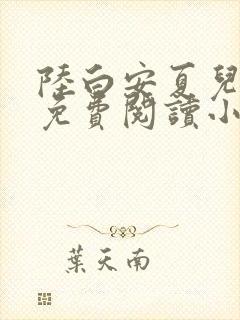 陸白安夏兒
免費閱讀小
葉天南